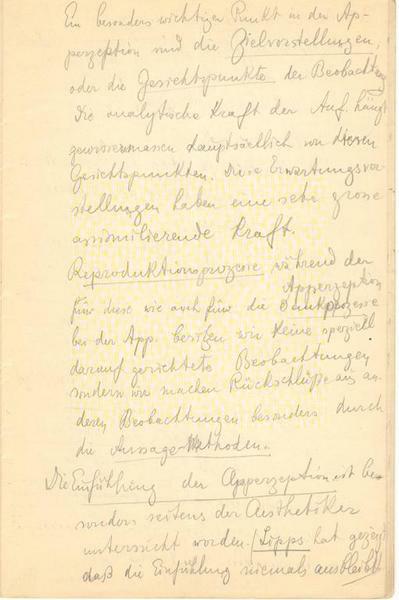 Ein besonders wichtiger Punkt in der Ap-
perzeption sind die Zielvorstellungen,
oder die Gesichtspunkte der Beobachtung
Die analytische Kraft der Auf. hängt
gewissermassen hauptsächlich von diesen
Gesichtspunkten. Diese Erwartungsvor-
stellungen haben eine sehr grosse
assimilierende Kraft.
Reproduktionsprozesse während der
Apperzeption
Für diese wie auch für die Denkprozesse
bei der App. besitzen wir keine speziell
darauf gerichtete Beobachtungen
sondern wir machen Rückschlüße aus an-
deren Beobachtungen besonders durch
die Aussage-Methoden.
Die Einführung der Apperzeption ist be-
sonders seitens der Aesthetiker
untersucht worden. Lipps hat gezeigt
daß die Einfühlung niemals ausbleibt.